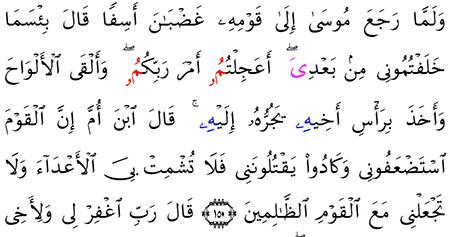 وَلَمَّا رَجَعَ مُوسَىٰٓ إِلَىٰ قَوْمِهِۦ غَضْبَـٰنَ أَسِفًا قَالَ بِئْسَمَا
خَلَفْتُمُونِى مِنۢ بَعْدِىَ ۖ أَعَجِلْتُمُۥٓ أَمْرَ رَبِّكُمُۥ ۖ وَأَلْقَى ٱلْأَلْوَاحَ
وَأَخَذَ بِرَأْسِ أَخِيهِۦ يَجُرُّهُۥٓ إِلَيْهِۦ ۚ قَالَ ٱبْنَ أُمَّ إِنَّ ٱلْقَوْمَ
ٱسْتَضْعَفُونِى وَكَادُوا۟ يَقْتُلُونَنِى فَلَا تُشْمِتْ بِىَ ٱلْأَعْدَآءَ وَلَا
تَجْعَلْنِى مَعَ ٱلْقَوْمِ ٱلظَّـٰلِمِينَ ١٥٠ قَالَ رَبِّ ٱغْفِرْ لِى وَلِأَخِى